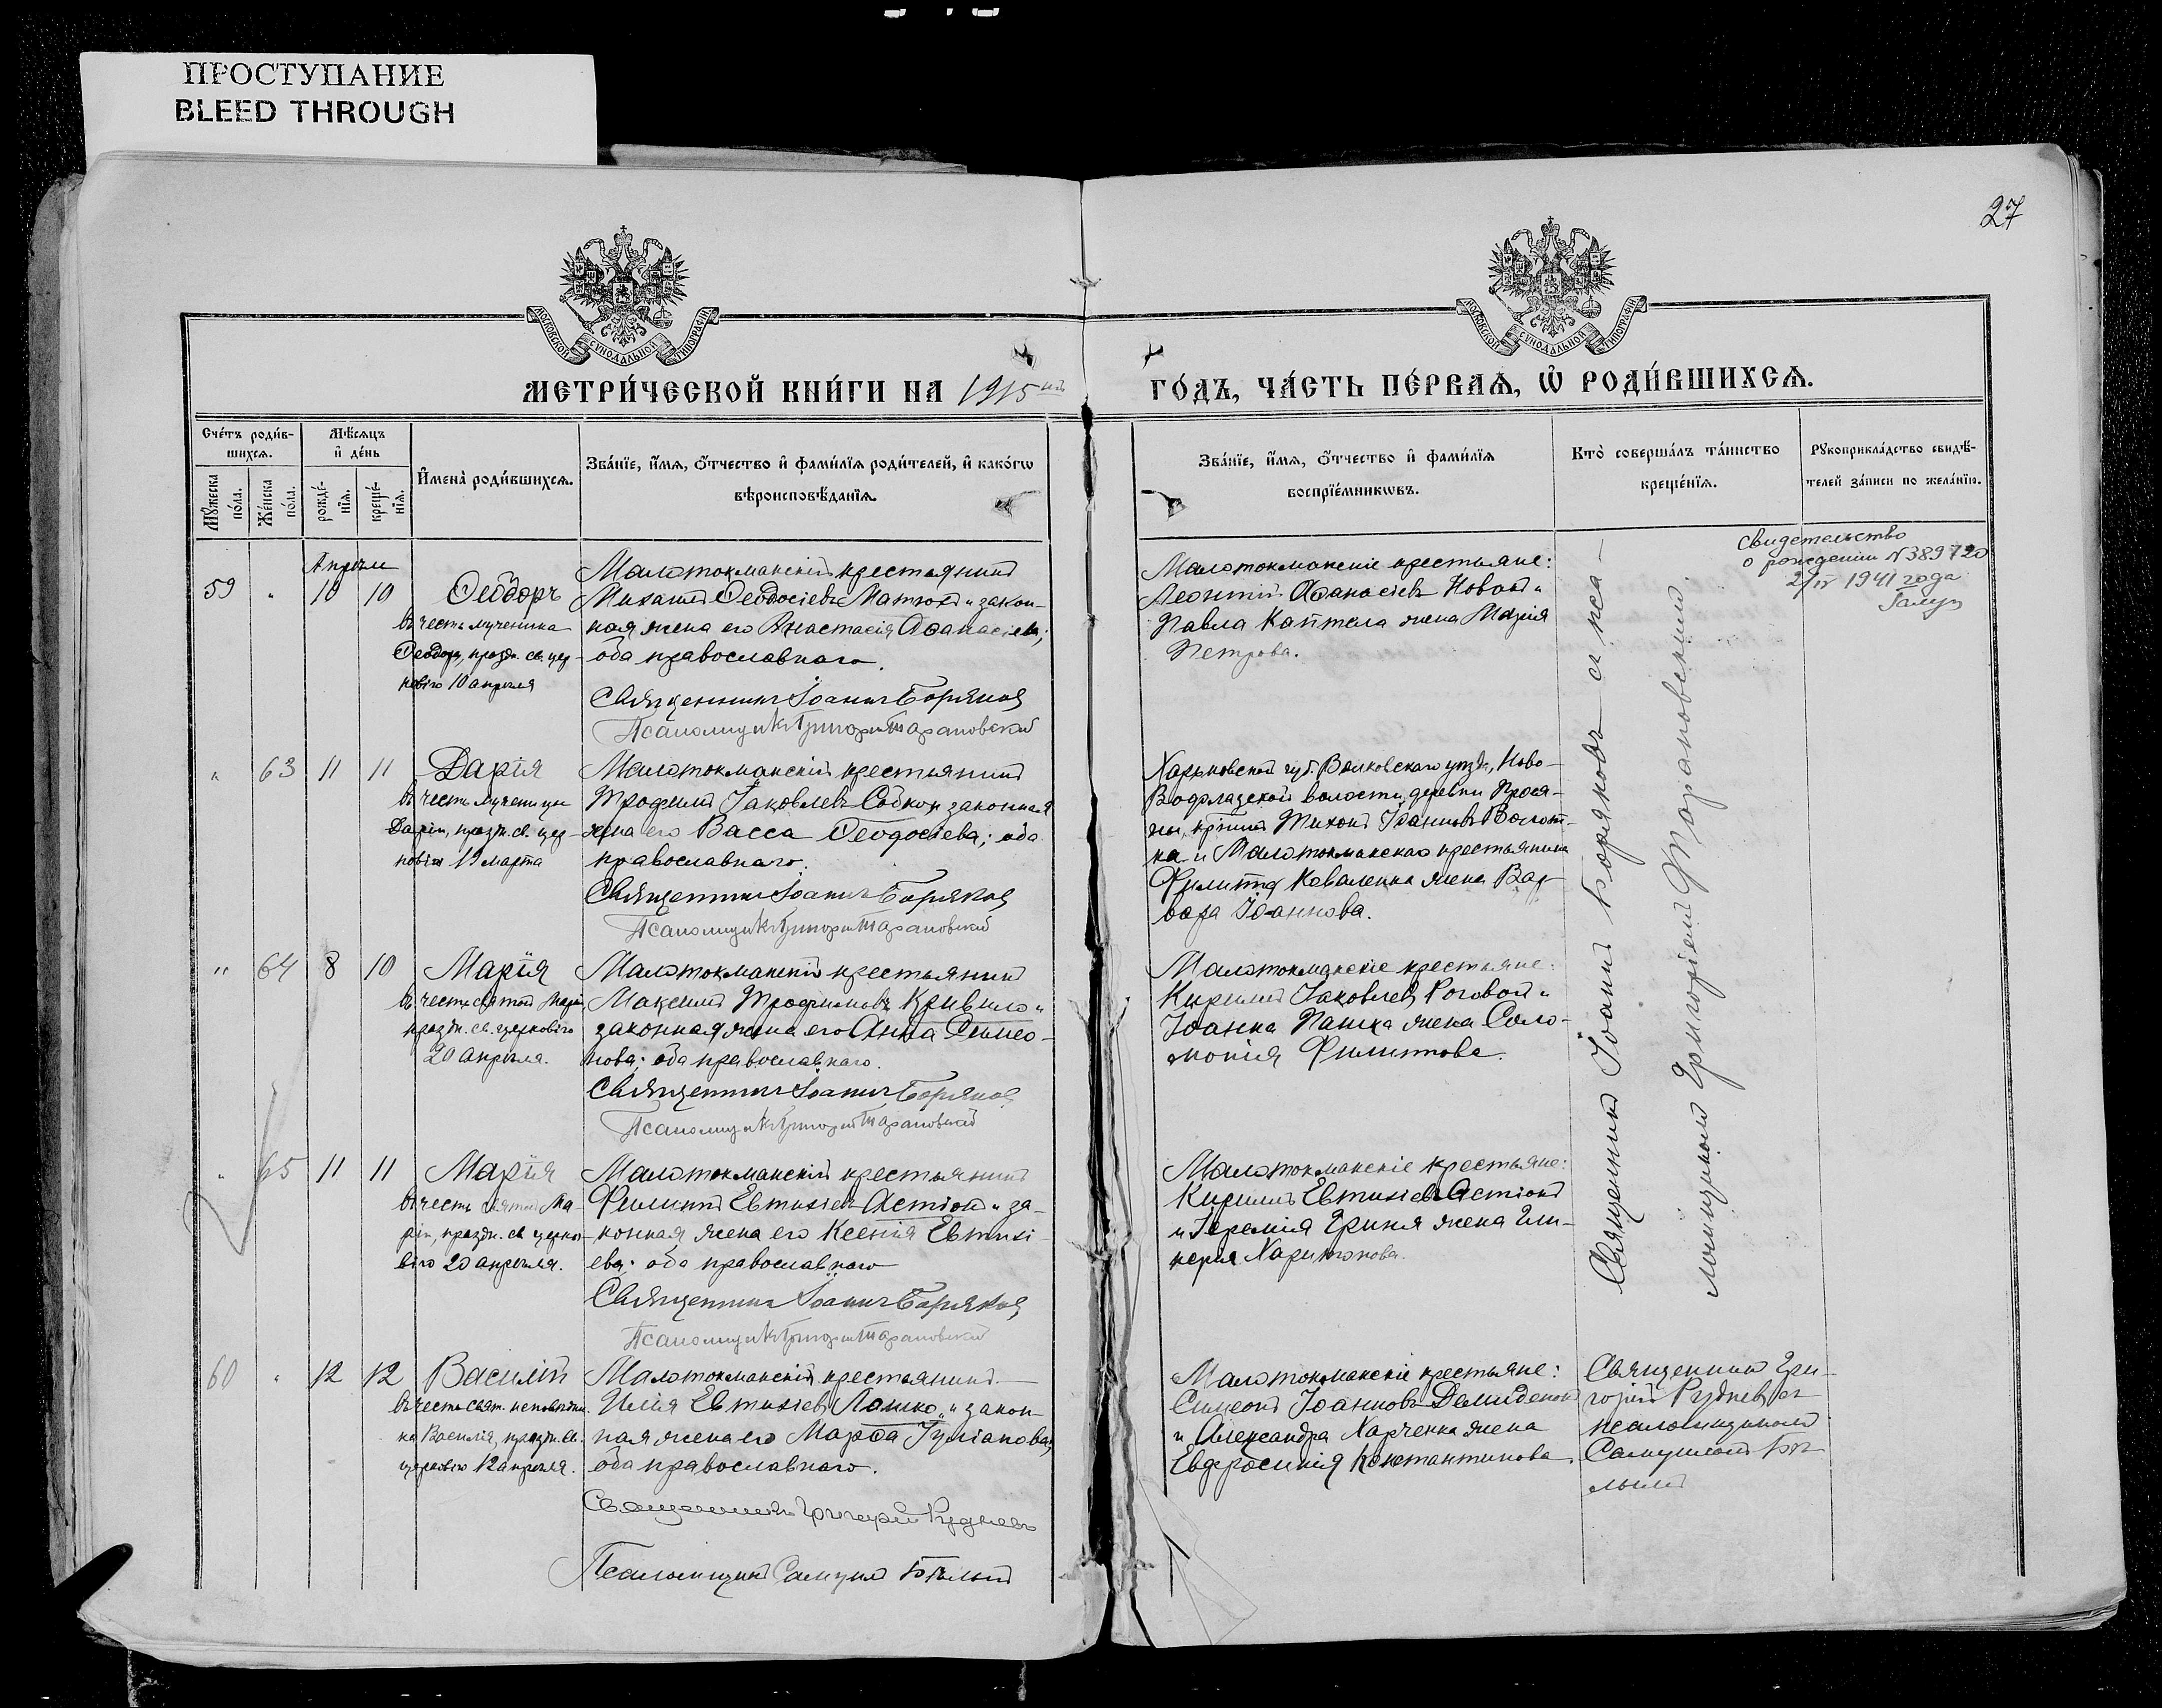 ПРОСТУПАНИЕ
BLEED THROUGH
27
МОСКОВСКОЙ СУНОДАЛЬНОЙ ТИПОГРАФІИ
МОСКОВСКОЙ СУНОДАЛЬНОЙ ТИПОГРАФІИ
МЕТРИ́ЧЕСКОЙ КНИ́ГИ НА 1915 ый
ГО́ДЪ, ЧА́СТЬ ПЕ́РВАѦ, Ѡ҆ РОДИ́ВШИХСѦ.
Сче́тъ роди́в-
шихсѧ.
Мѣ́сѧцъ
и҆ де́нь
Мꙋ́жеска
по́ла.
Же́нска
по́ла.
рожде́-
нїѧ.
креще́-
нїѧ.
И҆мена̀ роди́вшихсѧ.
Зва́нїе, и҆́мѧ, ѻ҆́тчество и҆ фами́лїѧ роди́телей, и҆ како́гѡ
вѣроисповѣ́данїѧ.
Зва́нїе, и҆́мѧ, ѻ҆́тчество и҆ фами́лїѧ
воспрїе́мникѡвъ.
Кто̀ соверша́лъ та́инство
креще́нїѧ.
Рꙋкоприкла́дство свидѣ́-
телей за́писи по жела́нїю.
Апрѣль
59 " 10 10 Ѳеодоръ
въ честь мученика
Ѳеодора, празд. св. цер-
ковію 10 апрѣля
Малотокманскій крестьянинъ
Михаилъ Ѳеодосіевъ Матюхъ и закон-
ная жена его Анастасія Аѳанасіева;
оба православнаго.
Священникъ Іоаннъ Боряковъ
Псаломщикъ Григорій Тарановскій
Малотокманскіе крестьяне:
Леонтій Аѳанасіевъ Новакъ и
Павла Каптела жена Марія
Петрова.
свидетельство
о рождении N 389720
2/IV 1941 года
" 63 11 11 Дарія
въ честь мученицы
Даріи, празд. св. цер-
ковію 19 марта
Малотокманскій крестьянинъ
Трофимъ Іаковлевъ Собко и законная
жена его Васса Ѳеодосіева; оба
православнаго.
Священникъ Іоаннъ Боряковъ
Псаломщикъ Григорій Тарановскій
Харьковской губ. Валковскаго уѣзда, Ново-
Водолазской волости, деревни Прося-
ны, кр-нинъ Тихонъ Іоанновъ
и Малотокманскаго крестьянина
Филиппа Коваленка жена Вар-
вара Іоаннова.
" 64 8 10 Марія
въ честь святой Маріи,
празд. св. церковію
20 апрѣля.
Малотокманскій крестьянинъ
Максимъ Трофимовъ Кривило и
законная жена его Анна Симео-
нова; оба православнаго.
Священникъ Іоаннъ Боряковъ
Псаломщикъ Григорій Тарановскій
Малотокманскіе крестьяне:
Кириллъ Іаковлевъ Роговой и
Іоанна Пашка жена Соло-
монія Филиппова.
" 65 11 11 Марія
въ честь святой Ма-
ріи, празд. св. церко-
вію 20 апрѣля.
Малотокманскій крестьянинъ
Филиппъ Евтихіевъ Астіонъ и за-
конная жена его Ксенія Евтихі-
ева; оба православнаго
Священникъ Іоаннъ Боряковъ
Псаломщикъ Григорій Тарановскій
Малотокманскіе крестьяне:
Кириллъ Евтихіевъ Астіонъ
и Іеремія Гриня жена Гли-
керія Харитонова.
Священникъ Іоаннъ Боряковъ съ пса-
ломщикомъ Григоріемъ Тарановскимъ.
60 " 12 12 Василій
въ честь свят. исповѣдни-
ка Василія, празд. св.
церковію 12 апрѣля.
Малотокманскій крестьянинъ
Илія Евтихіевъ Лошко и закон-
ная жена его Марѳа Іуліанова;
оба православнаго.
Священникъ Григорій Рудневъ
Псаломщикъ Самуилъ Бѣлый
Малотокманскіе крестьяне:
Симеонъ Іоанновъ Демиденко
и Александра Харченка жена
Евфросинія Константинова.
Священникъ Гри-
горій Рудневъ съ
псаломщикомъ
Самуиломъ Бѣ-
лымъ